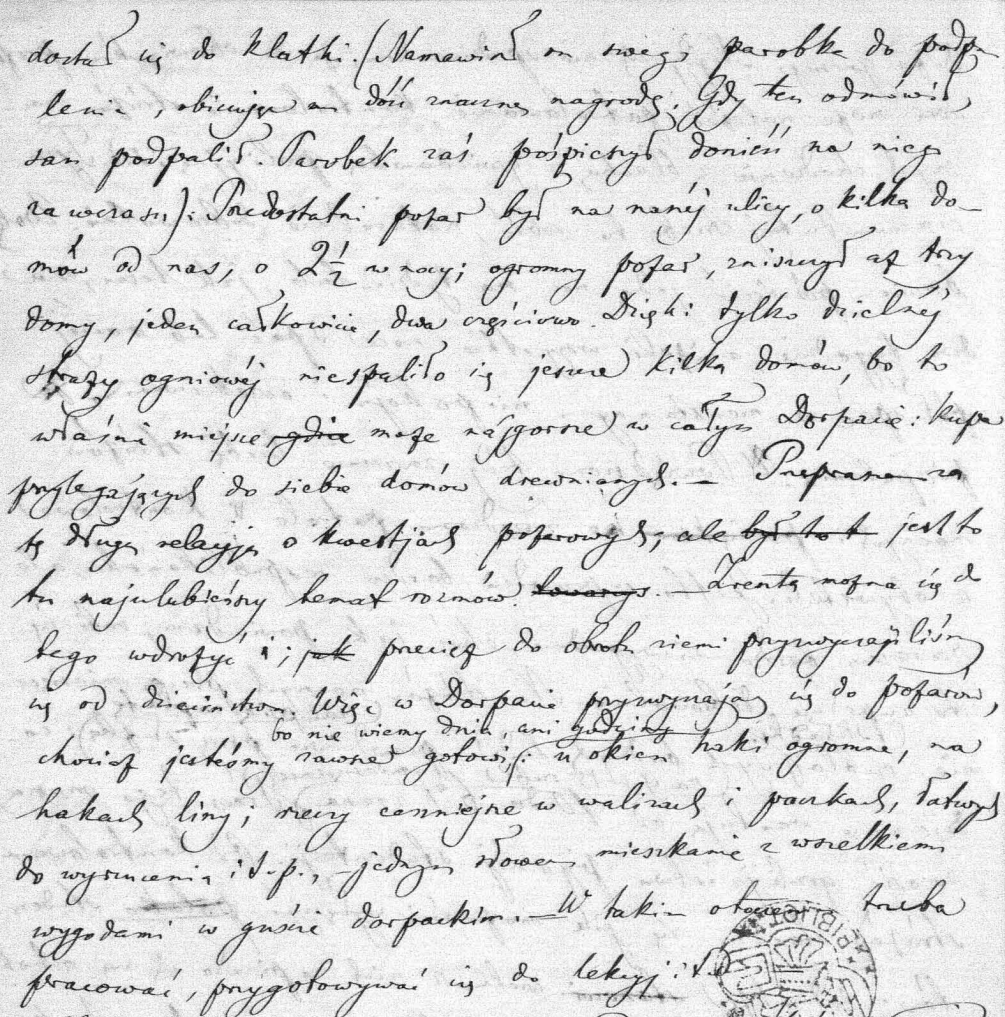 dostał się do klatki. (Namawiał on swego parobka do podpa-
lenia, obiecując mu dość znaczną nagrodę; Gdy ten odmówił,
sam podpalił. Parobek zaś pośpieszył donieść na niego
zawczasu). Przedostatni pożar był na naszéj ulicy, o kilka do-
mów od nas, o 2½ w nocy; ogromny pożar, zniszczył aż trzy
domy, jeden całkowicie, dwa częściowo. Dzięki tylko dzielnéj
straży ogniowéj niespaliło się jeszcze kilka domów, bo to
właśnie miejsce gdzie może najgorsze w całym Dorpacie: kupa
przylegających do siebie domów drewnianych. — Przepraszam za
tę długą relacyją o kwestjach pożarowych; ale był to t jest to
tu najulubieńszy temat rozmów. towarzys. — Zresztą można się do
tego wdrożyć i; jak przecież do obrotu ziemi przyzwyczailiśmy
się od dzieciństwa. Więc w Dorpacie przyzwyczajają się do pożarów,
bo nie wiemy dnia, ani godziny
chociaż jesteśmy zawsze gotowi: u okien haki ogromne, na
hakach liny; rzeczy cenniejsze w walizach i paczkach, łatwych
do wyrzucenia i t.p., jednym słowem mieszkanie z wszelkiemi
wygodami w guście dorpackim. — W takim trzeba
pracować, przygotowywać się do lekcyj i t.d.